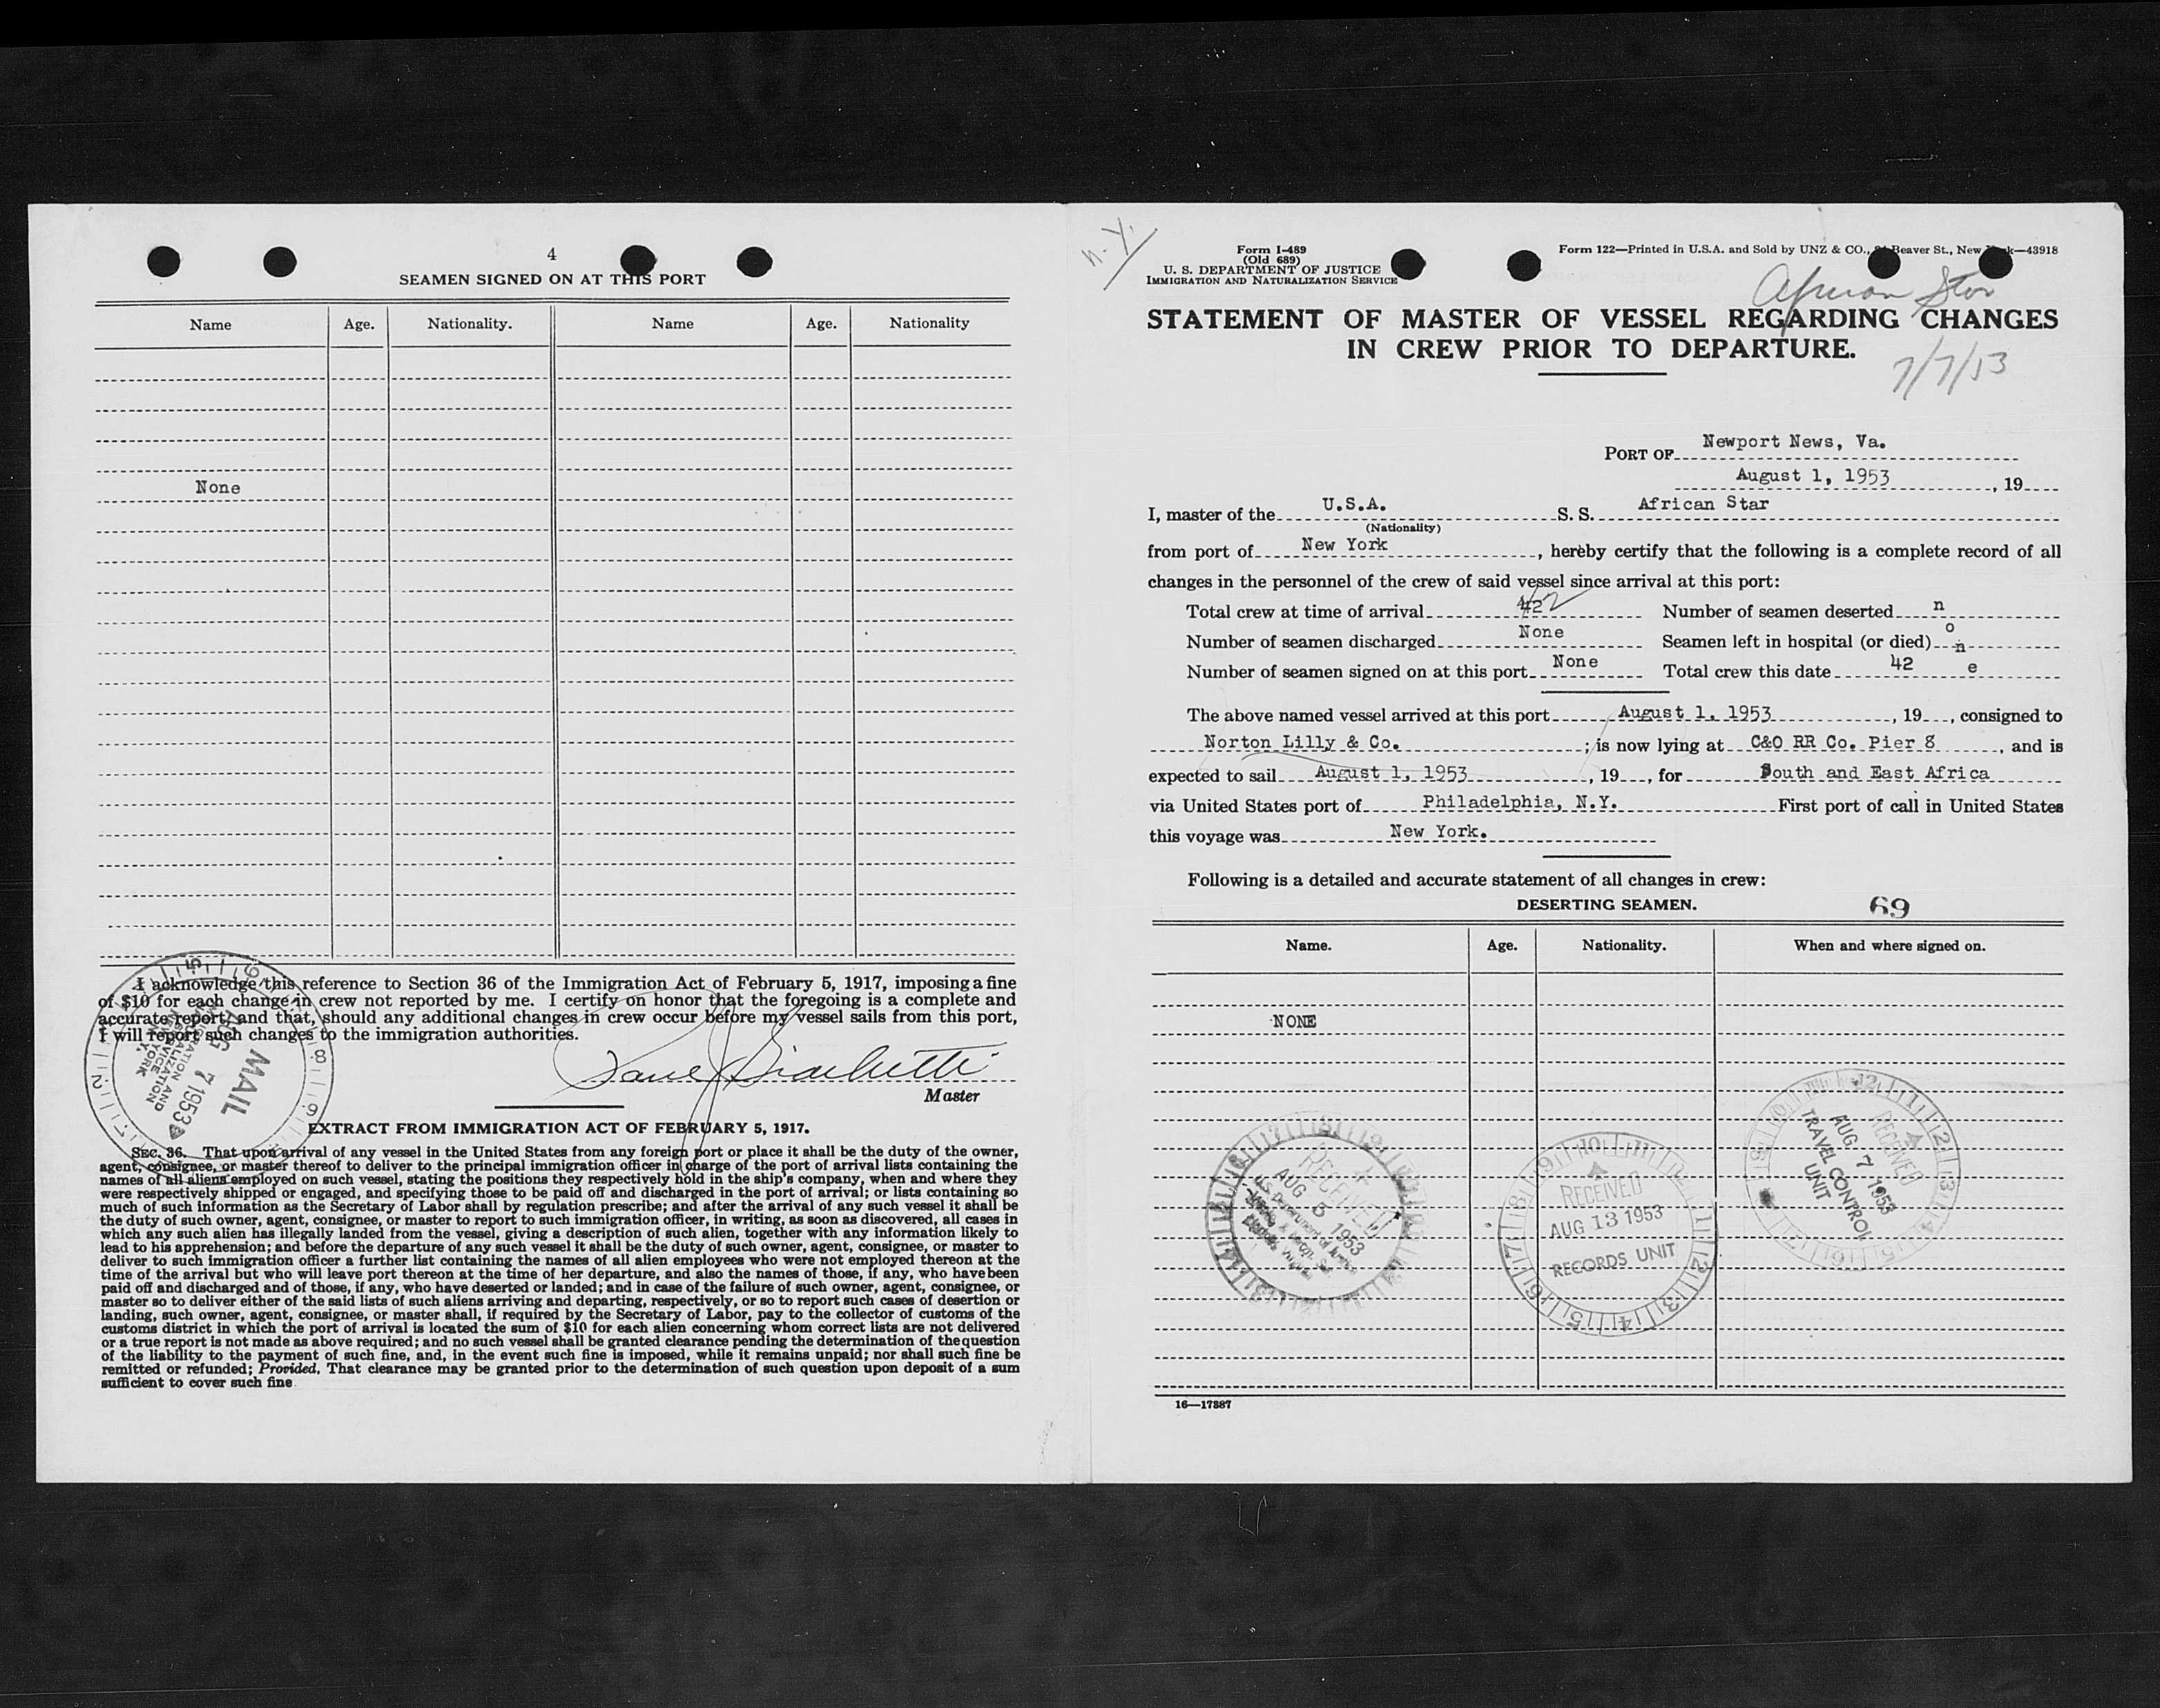 4
SEAMEN SIGNED ON AT THIS PORT
Name Age. Nationality. Name Age. Nationality
None
I acknowledge this reference to Section 36 of the Immigration Act of February 5, 1917, imposing a fine
of $10 for each change in crew not reported by me. I certify on honor that the foregoing is a complete and
accurate report, and that, should any additional changes in crew occur before my vessel sails from this port,
I will report such changes to the immigration authorities.
Master
MAIL
AUG 7 1953
IMMIGRATION AND
NATURALIZATION
SERVICE
NEW YORK
N.Y.
EXTRACT FROM IMMIGRATION ACT OF FEBRUARY 5, 1917.
SEC. 36. That upon arrival of any vessel in the United States from any foreign port or place it shall be the duty of the owner,
agent, consignee, or master thereof to deliver to the principal immigration officer in charge of the port of arrival lists containing the
names of all aliens employed on such vessel, stating the positions they respectively hold in the ship's company, when and where they
were respectively shipped or engaged, and specifying those to be paid off and discharged in the port of arrival; or lists containing so
much of such information as the Secretary of Labor shall by regulation prescribe; and after the arrival of any such vessel it shall be
the duty of such owner, agent, consignee, or master to report to such immigration officer, in writing, as soon as discovered, all cases in
which any such alien has illegally landed from the vessel, giving a description of such alien, together with any information likely to
lead to his apprehension; and before the departure of any such vessel it shall be the duty of such owner, agent, consignee, or master to
deliver to such immigration officer a further list containing the names of all alien employees who were not employed thereon at the
time of the arrival but who will leave port thereon at the time of her departure, and also the names of those, if any, who have been
paid off and discharged and of those, if any, who have deserted or landed; and in case of the failure of such owner, agent, consignee, or
master so to deliver either of the said lists of such aliens arriving and departing, respectively, or so to report such cases of desertion or
landing, such owner, agent, consignee, or master shall, if required by the Secretary of Labor, pay to the collector of customs of the
customs district in which the port of arrival is located the sum of $10 for each alien concerning whom correct lists are not delivered
or a true report is not made as above required; and no such vessel shall be granted clearance pending the determination of the question
of the liability to the payment of such fine, and, in the event such fine is imposed, while it remains unpaid; nor shall such fine be
remitted or refunded; Provided, That clearance may be granted prior to the determination of such question upon deposit of a sum
sufficient to cover such fine
N.Y.
Form I-489
(Old 689)
U. S. DEPARTMENT OF JUSTICE
IMMIGRATION AND NATURALIZATION SERVICE
Form 122—Printed in U.S.A. and Sold by UNZ & CO., Beaver St., New —43918
African Star
STATEMENT OF MASTER OF VESSEL REGARDING CHANGES
IN CREW PRIOR TO DEPARTURE.
7/7/53
PORT OF Newport News, Va.
August 1, 1953, 19
I, master of the U.S.A. S. S. African Star
(Nationality)
from port of New York, hereby certify that the following is a complete record of all
changes in the personnel of the crew of said vessel since arrival at this port:
Total crew at time of arrival 42 Number of seamen deserted n
Number of seamen discharged None Seamen left in hospital (or died) o n
Number of seamen signed on at this port None Total crew this date 42 e
The above named vessel arrived at this port August 1, 1953, 19, consigned to
Norton Lilly & Co.; is now lying at C&O RR Co. Pier 8, and is
expected to sail August 1, 1953, 19, for South and East Africa
via United States port of Philadelphia, N.Y. First port of call in United States
this voyage was New York.
Following is a detailed and accurate statement of all changes in crew:
DESERTING SEAMEN. 69
Name. Age. Nationality. When and where signed on.
NONE
RECEIVED
AUG 5 1953
U.S. Department of Justice
RECEIVED
AUG 13 1953
RECORDS UNIT
RECEIVED
AUG 7 1953
TRAVEL CONTROL
UNIT
16—17387